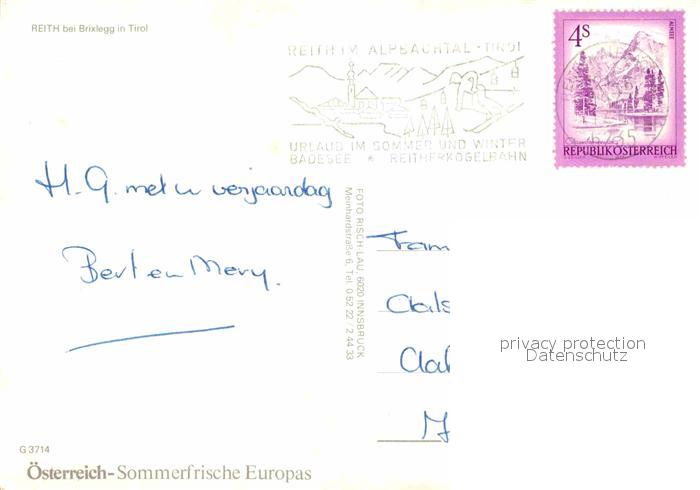 REITH bei Brixlegg in Tirol
REITH IM ALPBACHTAL · TIROL
URLAUB IM SOMMER UND WINTER
BADESEE * REITHERKOGELBAHN
4S
ALMSEE
6235
REPUBLIK ÖSTERREICH
H. G. met uw verjaardag
Bert en Mery.
FOTO RISCH-LAU, 6020 INNSBRUCK
Meinhardstraße 6, Tel. 0 52 22 / 2 44 33
Fam
Aals
privacy protection
Datenschutz
G 3714
Österreich-Sommerfrische Europas